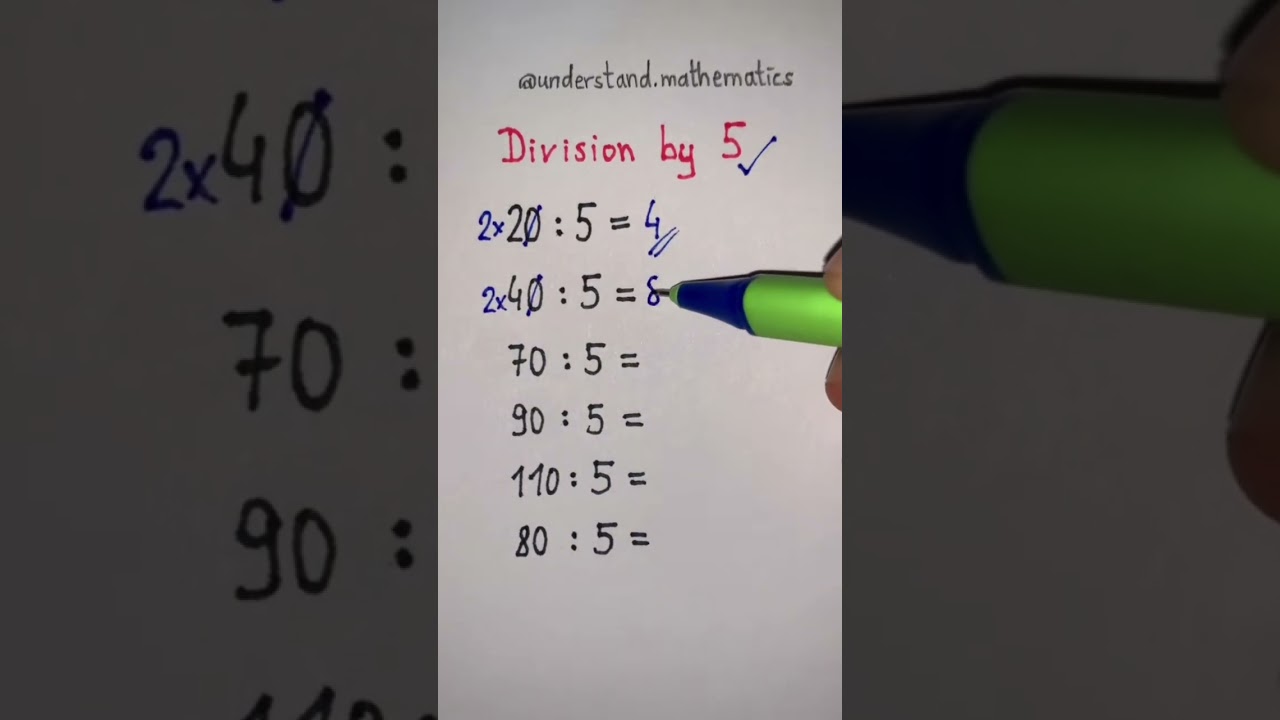 @understand.mathematics
Division by 5 ✓
2×20 : 5 = 4
2×40 : 5 = 8
70 : 5 =
90 : 5 =
110 : 5 =
80 : 5 =